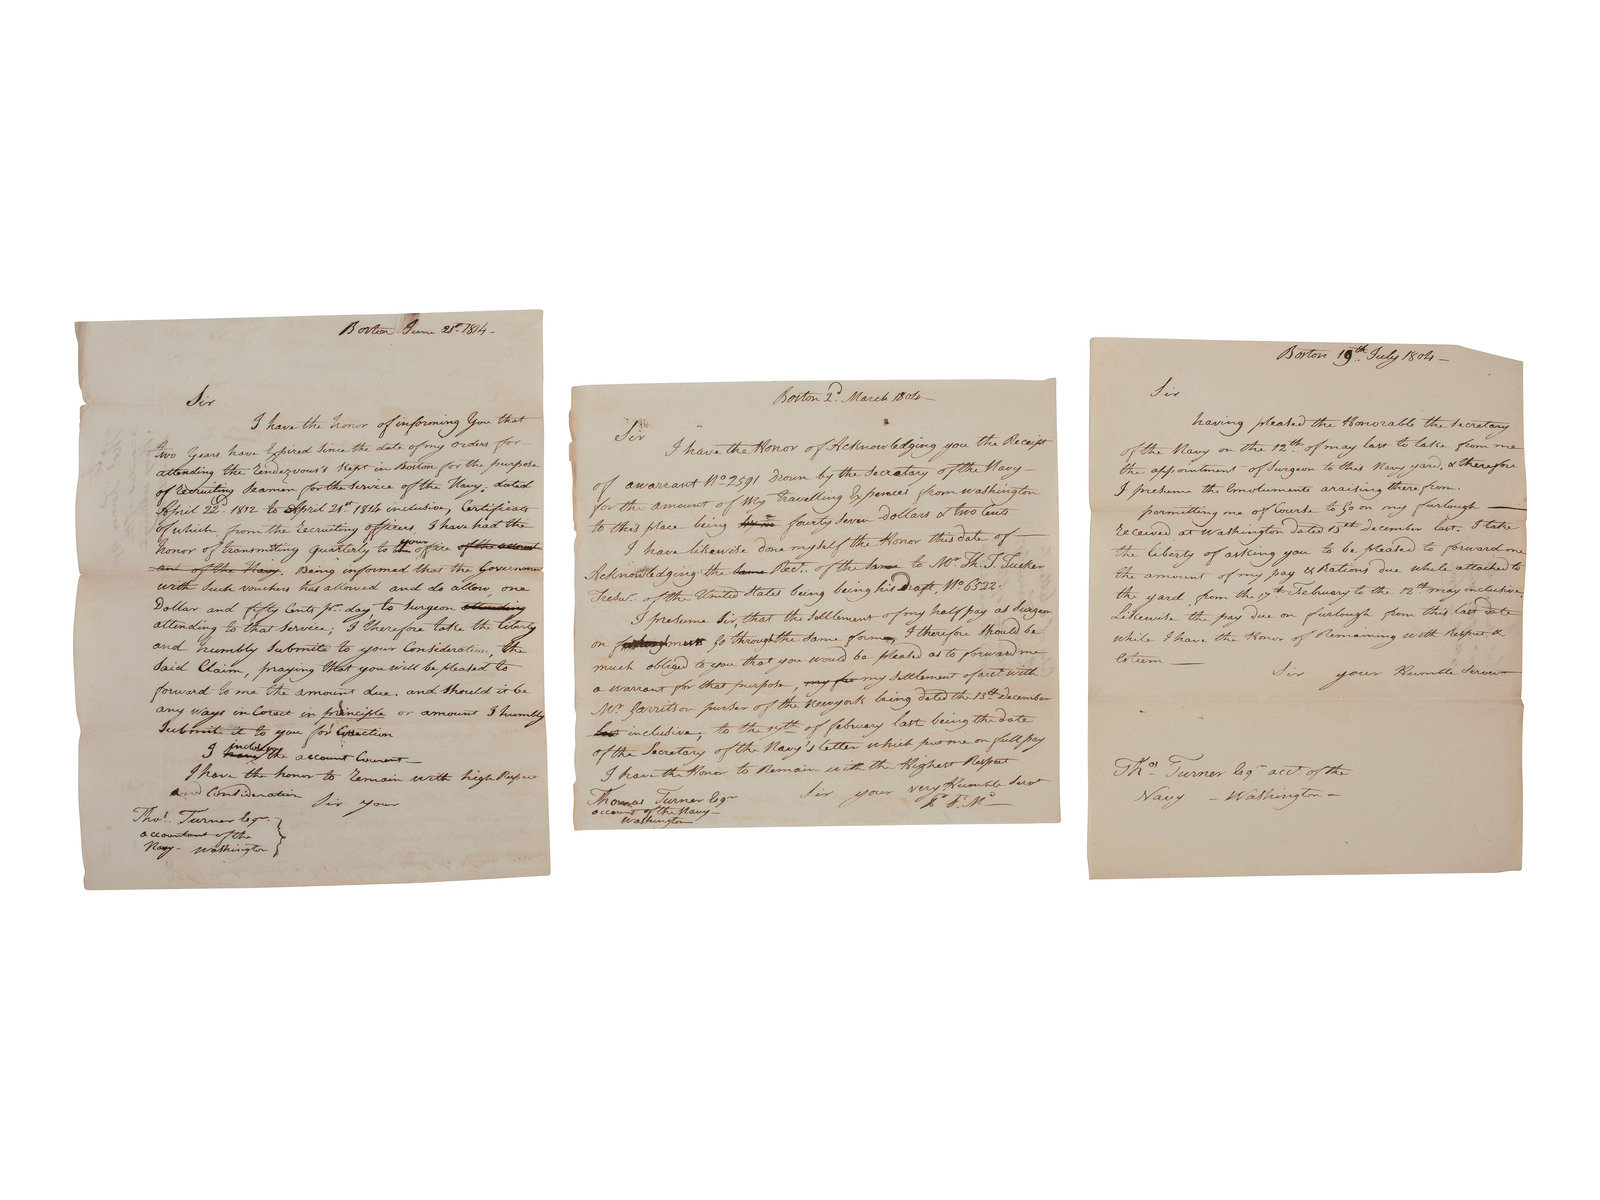 Boston June 21st 1814-
Sir
I have the honor of informing You that
Two Years have Expired Since the date of my orders for-
attending the Rendezvous's Kept in Boston for the purpose
of Recruiting Seamen for the Service of the Navy; dated
April 22d 1812 to April 21st 1814 inclusive, Certificate
of which from the Recruiting officers I have had the
honor of transmiting Quarterly to your office of the account
ant of the Navy. Being informed that the Governmen
with Such vouchers has allowed and do allow, one
Dollar and fifty Cents pr. day, to Surgeon attending
attending to that Service; I therefore take the liberty
and humbly Submite to your Consideration, the
Said Claim, praying that you will be pleased to
forward to me the amount due. and Should it be
any ways inCorect in principle or amount I humbly
Submit it to you for Corection
I inclose have the account Current-
I have the honor to Remain with high Respect
and Consideration Sir your
Thos. Turner Esqr.
accountant of the
Navy- Washington
Boston 2d March 1804-
Sir I have the Honor of Acknowledging you the Receipt
of a warrant No 2591 Drown by the Secretary of the Navy-
for the amount of My Travelling Expences from Washington
to this place being fourty Seven Dollars & two Cents
I have likewise done myself the Honor this date of-
Acknowledging the same Rect. of the same to Mr Th. T. Tucker
Tresr. of the United States being being his Draft, No 6522.
I presume Sir, that the Settlement of my half pay as Surgeon
on go through the Same forme, I therefore Should be
much obliged to you that you would be pleased as to forward me
a warrant for that purpose, my settlement of acct. with
Mr. Garritson purser of the Newyork being dated the 13th December
last inclusive; to the 17th of february last being the date
of the Secretary of the Navy's letter which put me on full pay
I have the Honor to Remain with the Highest Respect
Sir your very Humble Servt
Thomas Turner Esqr
account of the Navy-
Washington
Boston 19th July 1804-
Sir
having pleased the Honorable the Secretary
of the Navy on the 12th of may last to take from me
the appointment of Surgeon to this Navy yard, & therefore
I presume the Emoluments araising therefrom.
permitting me of Course to go on my furlough
Received at Washington dated 13th December last. I take
the liberty of asking you to be pleased to forward me
the amount of my pay & Rations due while attached to
the yard from the 17th February to the 12th may inclusive.
Likewise the pay due on furlough from this last date
while I have the Honor of Remaining with Respect &
Esteem-
Sir your Humble Servan
Thos Turner Esqr acct. of the
Navy - Washington-